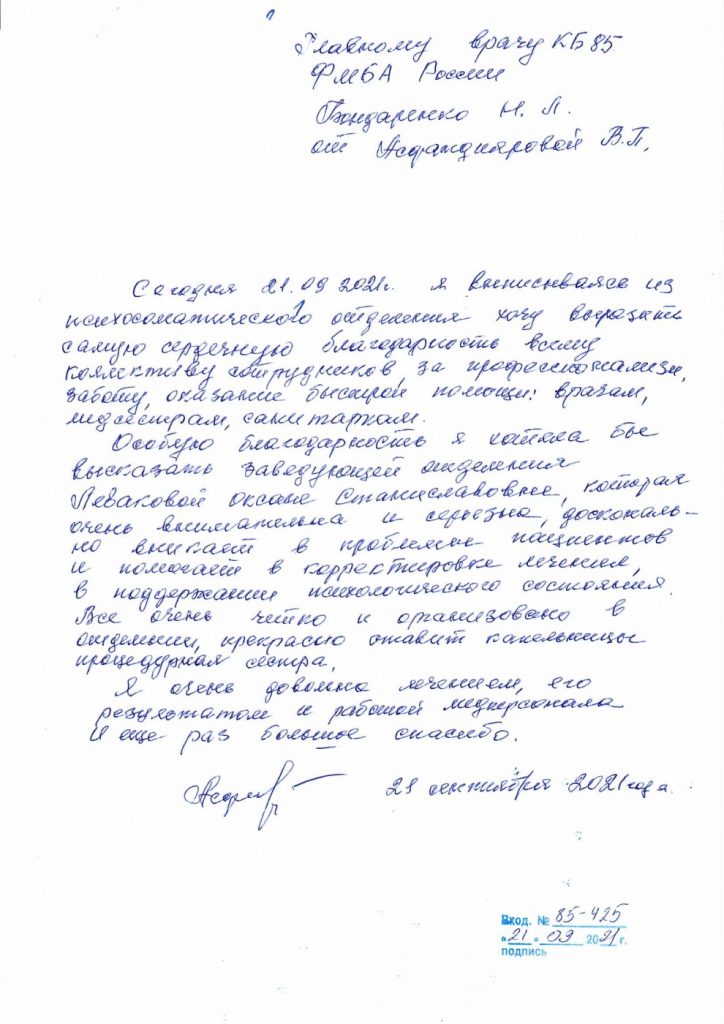 Главному врачу КБ 85
ФМБА России
Бондаренко Н. Л.
от Асфандияровой В.П.
Сегодня 21.09 2021г. я выписываясь из
психосоматического отделения хочу выразить
самую сердечную благодарность всему
коллективу сотрудников, за профессионализм,
заботу, оказание быстрой помощи: врачам,
медсестрам, санитаркам.
Особую благодарность я хотела бы
высказать заведующей отделения
Леваковой Оксане Станиславовне, которая
очень внимательна и серьезна, доскональ-
но вникает в проблемы пациентов
и помогает в корректировке лечения,
в поддержании психологического состояния.
Все очень четко и организовано в
отделении, прекрасно ставит капельницы
процедурная сестра.
Я очень довольна лечением, его
результатом и работой медперсонала
И еще раз большое спасибо.
21 сентября 2021 года.
Вход. № 85-425
«21» 09 2021 г.
подпись